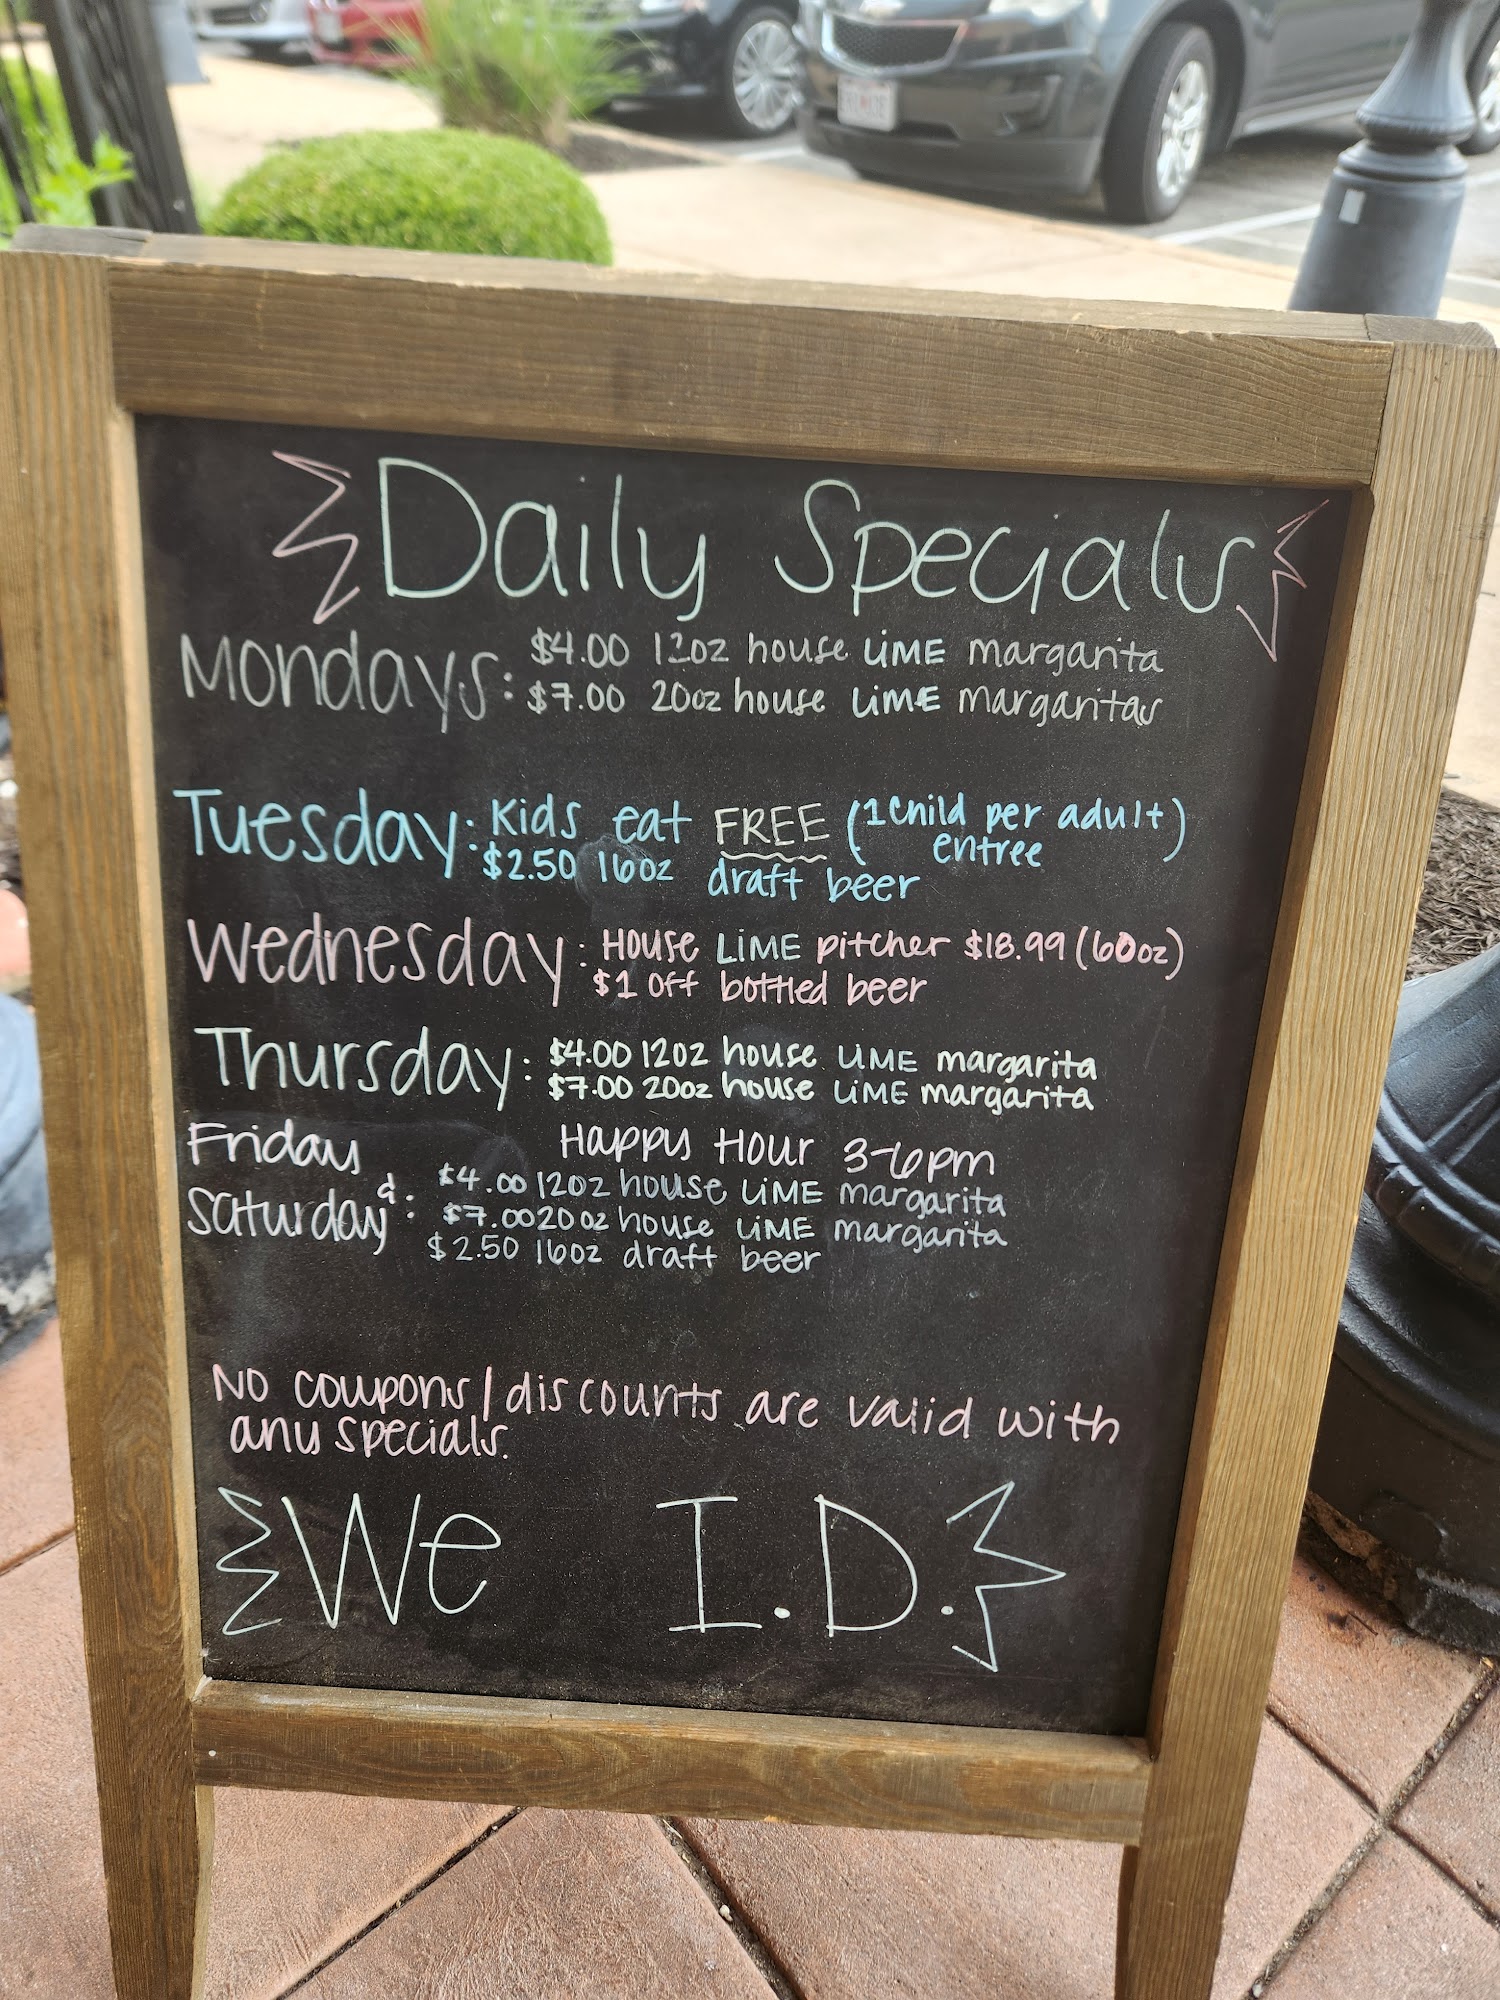 Daily Specials
Mondays: $4.00 12oz house LIME margarita
$7.00 20oz house LIME margaritas
Tuesday: Kids eat FREE (1 child per adult)
entree
$2.50 16oz draft beer
Wednesday: House LIME pitcher $18.99 (60oz)
$1 off bottled beer
Thursday: $4.00 12oz house LIME margarita
$7.00 20oz house LIME margarita
Friday Happy Hour 3-6pm
& $4.00 12oz house LIME margarita
Saturday: $7.00 20oz house LIME margarita
$2.50 16oz draft beer
No coupons/discounts are valid with
any specials.
We I.D.